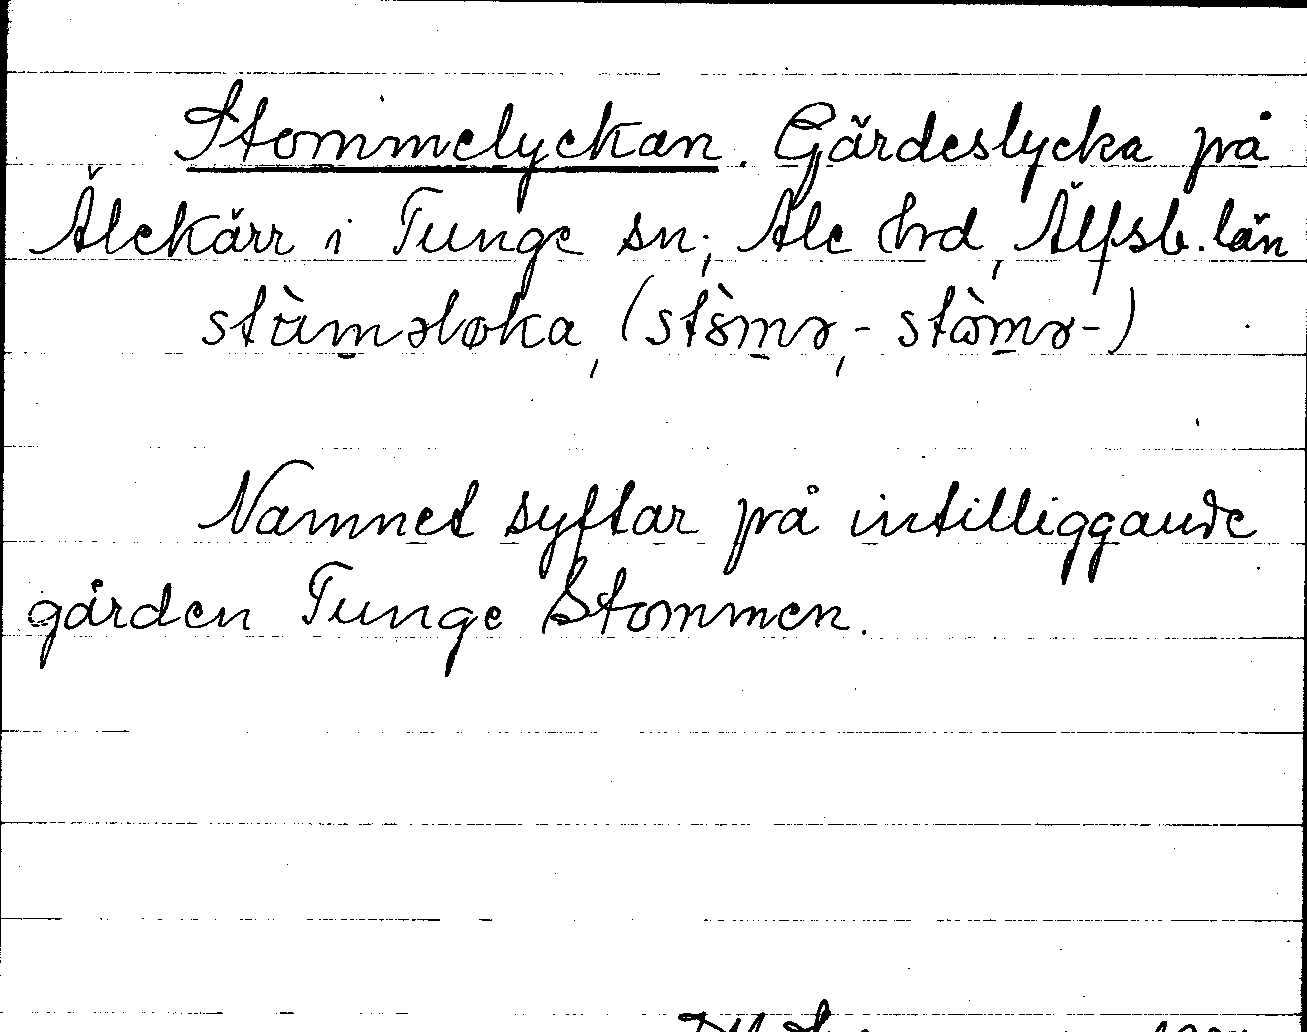 Stommelyckan. Gärdeslycka på
Älekärr i Tunge sn, Ale hrd, Älfsb. län
stùmələka, (stòmə,- stòmə-)
Namnet syftar på intilliggande
gården Tunge Stommen.